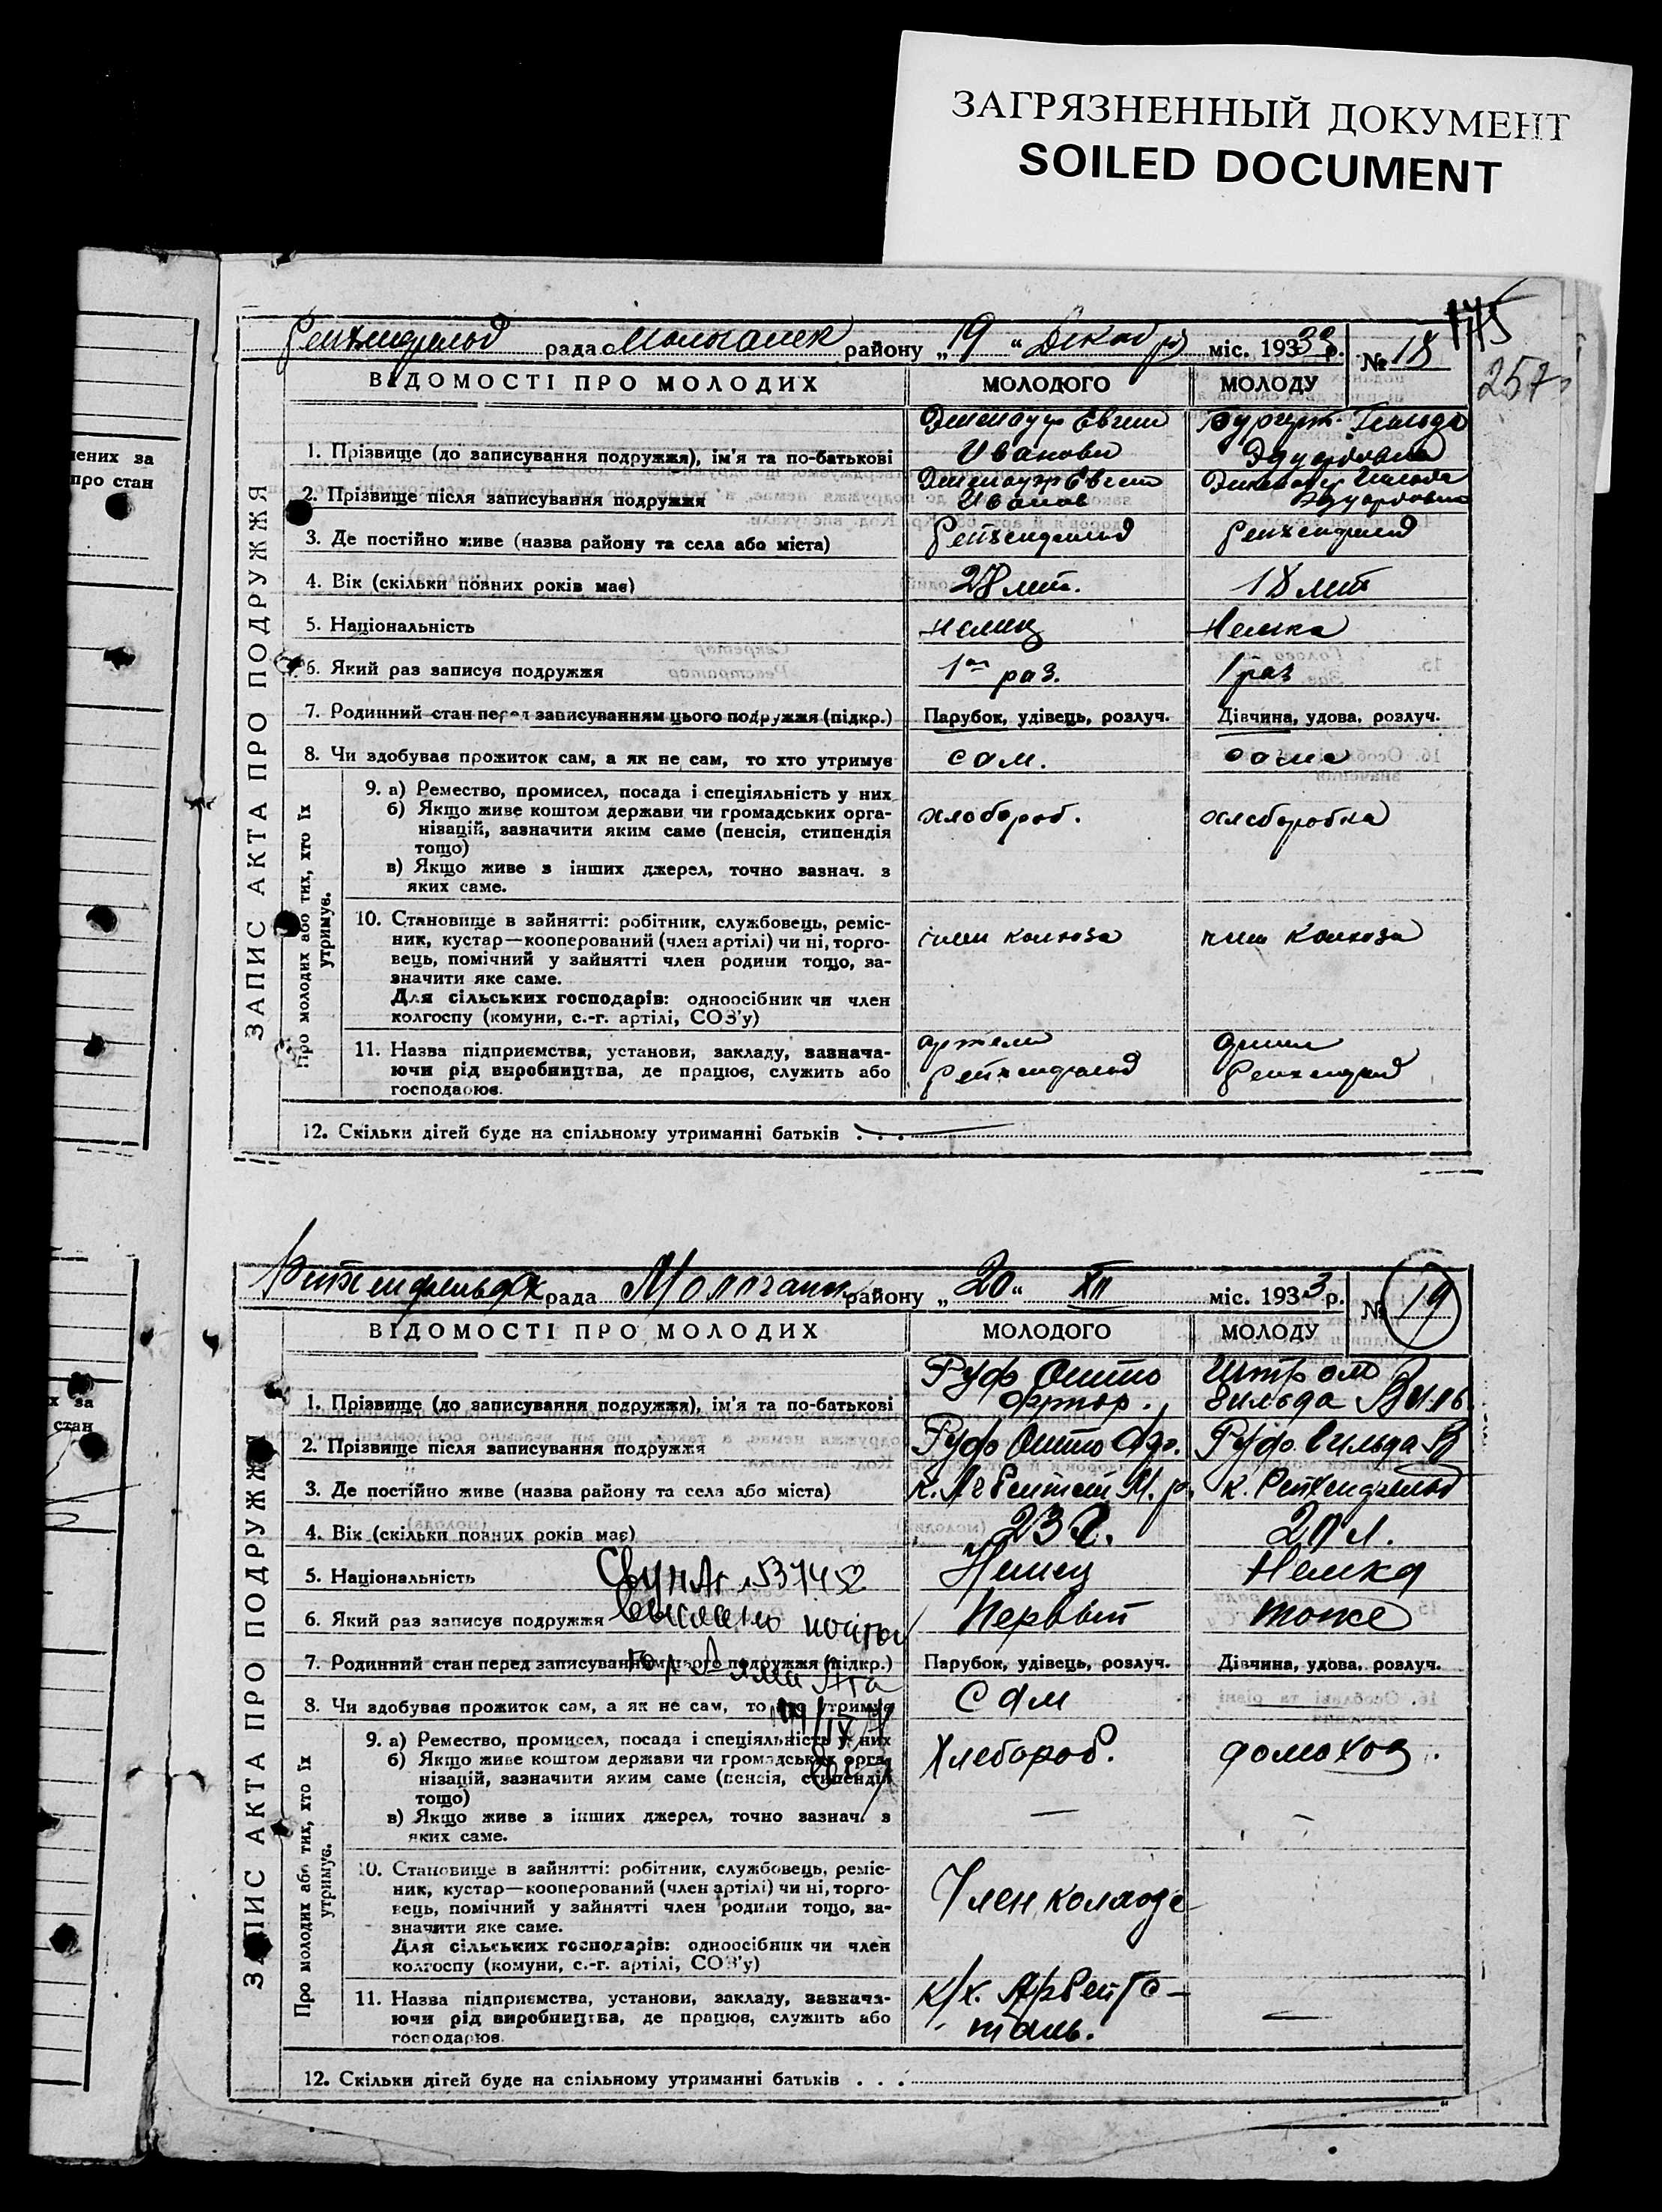 ЗАГРЯЗНЕННЫЙ ДОКУМЕНТ
SOILED DOCUMENT
175
257
Рейхенфельд рада Молочанск району „19“ Декабр міс. 1933 р. № 18
ВІДОМОСТІ ПРО МОЛОДИХ МОЛОДОГО МОЛОДУ
1. Прізвище (до записування подружжя), ім'я та по-батькові
Иванович Эдуардовна
2. Прізвище після записування подружжя
3. Де постійно живе (назва району та села або міста) Рейхенфельд Рейхенфельд
4. Вік (скільки повних років має) 28 лет. 18 лет
5. Національність немец Немка
6. Який раз записує подружжя 1ый раз. 1 раз
7. Родинний стан перед записуванням цього подружжя (підкр.) Парубок, удівець, розлуч. Дівчина, удова, розлуч.
8. Чи здобуває прожиток сам, а як не сам, то хто утримує сам. сама
9. а) Ремество, промисел, посада і спеціяльність у них
б) Якщо живе коштом держави чи громадських орга-
нізацій, зазначити яким саме (пенсія, стипендія
тощо)
хлебороб. хлеборобка
в) Якщо живе з інших джерел, точно зазнач. з
яких саме.
10. Становище в зайнятті: робітник, службовець, реміс-
ник, кустар—кооперований (член артілі) чи ні, торго-
вець, помічний у зайнятті член родини тощо, за-
значити яке саме.
Для сільських господарів: одноосібник чи член
колгоспу (комуни, с.-г. артілі, СОЗ'у)
член колхоза член колхоза
11. Назва підприємства, установи, закладу, зазнача-
ючи рід виробництва, де працює, служить або
господарює.
артель
Рейхенфельд Рейхенфельд
12. Скільки дітей буде на спільному утриманні батьків . . .
ЗАПИС АКТА ПРО ПОДРУЖЖЯ
Про молодих або тих, хто їх
утримує.
Рейхенфельдск рада Молочанск району „20“ XII міс. 1933 р. № 19
ВІДОМОСТІ ПРО МОЛОДИХ МОЛОДОГО МОЛОДУ
Руф Отто Штром
1. Прізвище (до записування подружжя), ім'я та по-батькові Зильда Виль
2. Прізвище після записування подружжя Руф Отто Руф Зильда В
3. Де постійно живе (назва району та села або міста) к. Рейхенфельд
4. Вік (скільки повних років має) 23 г. 20 л.
5. Національність Немец Немка
6. Який раз записує подружжя Первый тоже
7. Родинний стан перед записуванням цього подружжя (підкр.) Парубок, удівець, розлуч. Дівчина, удова, розлуч.
8. Чи здобуває прожиток сам, а як не сам, то хто утримує Сам
9. а) Ремество, промисел, посада і спеціяльність у них
б) Якщо живе коштом держави чи громадських орга-
нізацій, зазначити яким саме (пенсія, стипендія
тощо)
Хлебороб. домохоз.
в) Якщо живе з інших джерел, точно зазнач. з
яких саме.
10. Становище в зайнятті: робітник, службовець, реміс-
ник, кустар—кооперований (член артілі) чи ні, торго-
вець, помічний у зайнятті член родини тощо, за-
значити яке саме.
Для сільських господарів: одноосібник чи член
колгоспу (комуни, с.-г. артілі, СОЗ'у)
Член колхоза
11. Назва підприємства, установи, закладу, зазнача-
ючи рід виробництва, де працює, служить або
господарює.
к/х.
таль.
12. Скільки дітей буде на спільному утриманні батьків . . .
ЗАПИС АКТА ПРО ПОДРУЖЖЯ
Про молодих або тих, хто їх
утримує.